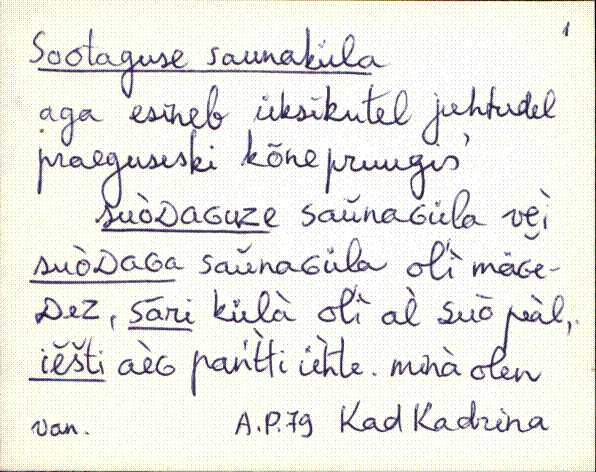 1
Sootaguse saunaküla
aga esineb üksikutel juhtudel
praeguseski kõnepruugis'
suòDaGuze saŭnaGüla vèi
suòDaGa saŭnaGüla olì mäGe-
Dez, sāri külà olì al̀ suò peàl,
iĕšti aèG pańt̀ti ièhte. minà olen
van. A.P.79 Kad Kadrina